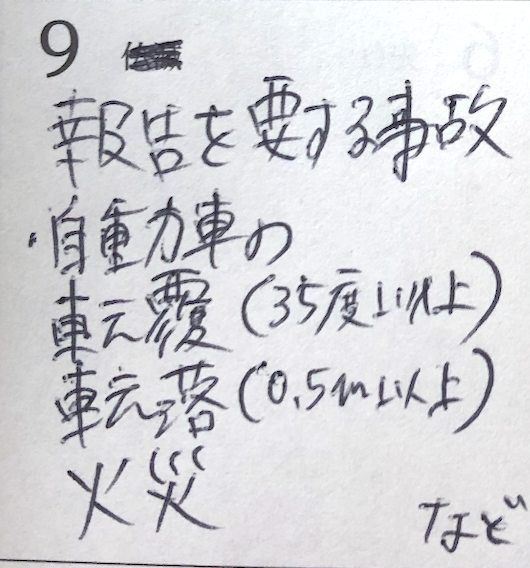 9
報告を要する事故
・自動車の
転覆(35度以上)
転落(0.5m以上)
火災
など